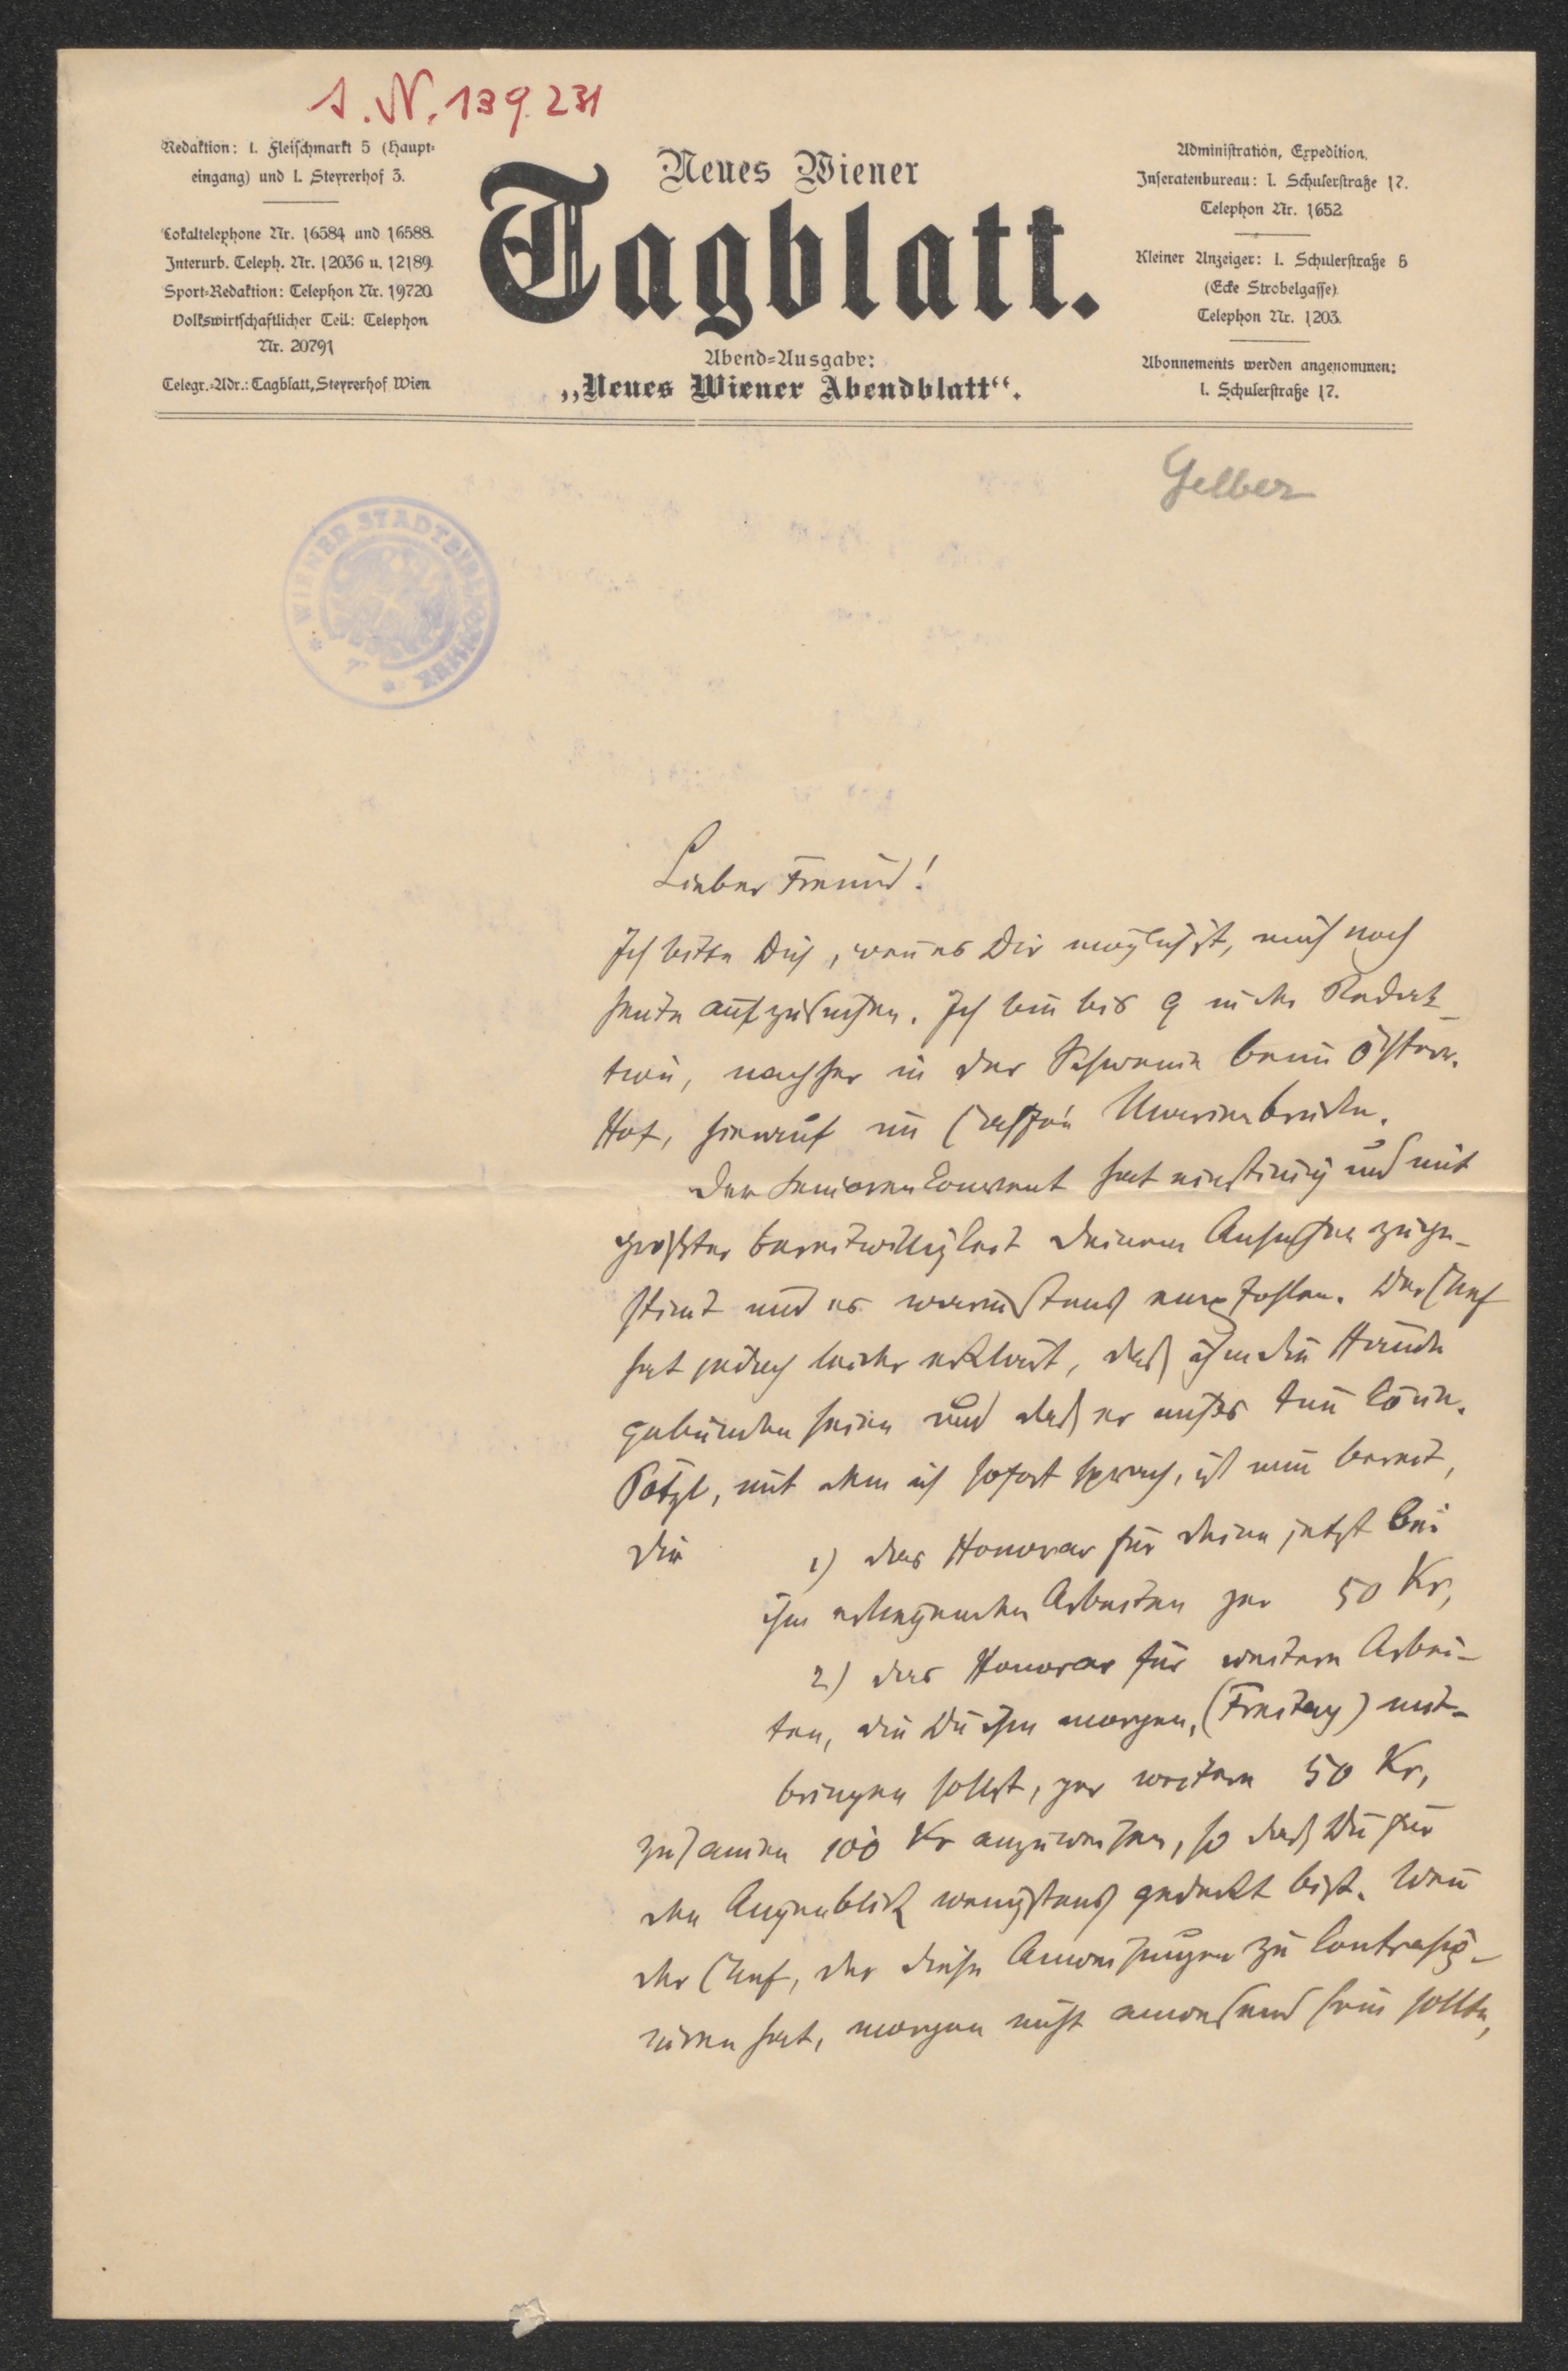 I. N. 139.231
Redaktion: I. Fleischmarkt 5 (Haupt-
eingang) und I. Steyrerhof 3.
Lokaltelephone Nr. 16584 und 16588.
Interurb. Teleph. Nr. 12036 u. 12189.
Sport-Redaktion: Telephon Nr. 19720.
Volkswirtschaftlicher Teil: Telephon
Nr. 20791
Telegr.-Adr.: Tagblatt, Steyrerhof Wien
Neues Wiener
Tagblatt.
Abend-Ausgabe:
„Neues Wiener Abendblatt“.
Administration, Expedition,
Inseratenbureau: I. Schulerstraße 17.
Telephon Nr. 1652
Kleiner Anzeiger: I. Schulerstraße 5
(Ecke Strobelgasse).
Telephon Nr. 1203.
Abonnements werden angenommen:
I. Schulerstraße 17.
Gelber
WIENER STADTBIBLIOTHEK
Lieber Freund!
Ich bitte Dich, wenn es Dir möglich ist, mich noch
heute aufzusuchen. Ich bin bis 9 in der Redak-
tion, nachher in der Schwemme beim Österr.
Hof, hierauf im Marienbrücke.
Der Seniorenconvent hat einstimmig und mit
größter Bereitwilligkeit Deinem Ansuchen zuge-
stimmt und es wärmstens empfohlen. Der Chef
hat jedoch leider erklärt, daß ihm die Hände
gebunden seien und daß er nichts tun könne.
Pötzl, mit dem ich sofort sprach, ist nun bereit,
Dir 1) das Honorar für Deine jetzt bei
ihm erliegenden Arbeiten per 50 Kr,
2) das Honorar für weitere Arbei-
ten, die Du ihm morgen, (Freitag) mit-
bringen sollst, per weitere 50 Kr,
zusammen 100 Kr anzuweisen, so daß Du für
den Augenblick wenigstens gedeckt bist. Wenn
der Chef, der diese Anweisungen zu contrasig-
niren hat, morgen nicht anwesend sein sollte,